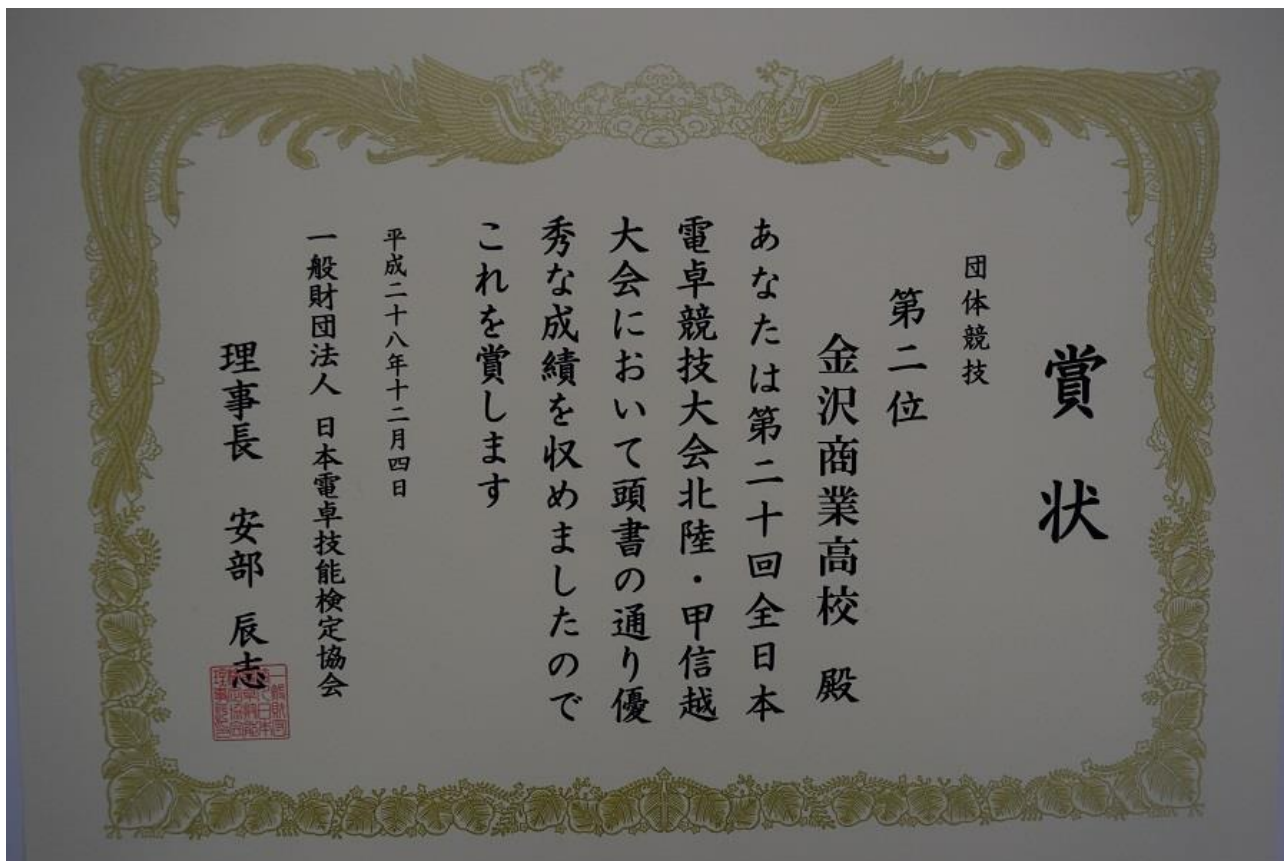 賞状
団体競技
第二位
金沢商業高校 殿
あなたは第二十回全日本
電卓競技大会北陸・甲信越
大会において頭書の通り優
秀な成績を収めましたので
これを賞します
平成二十八年十二月四日
一般財団法人 日本電卓技能検定協会
理事長 安部 辰志